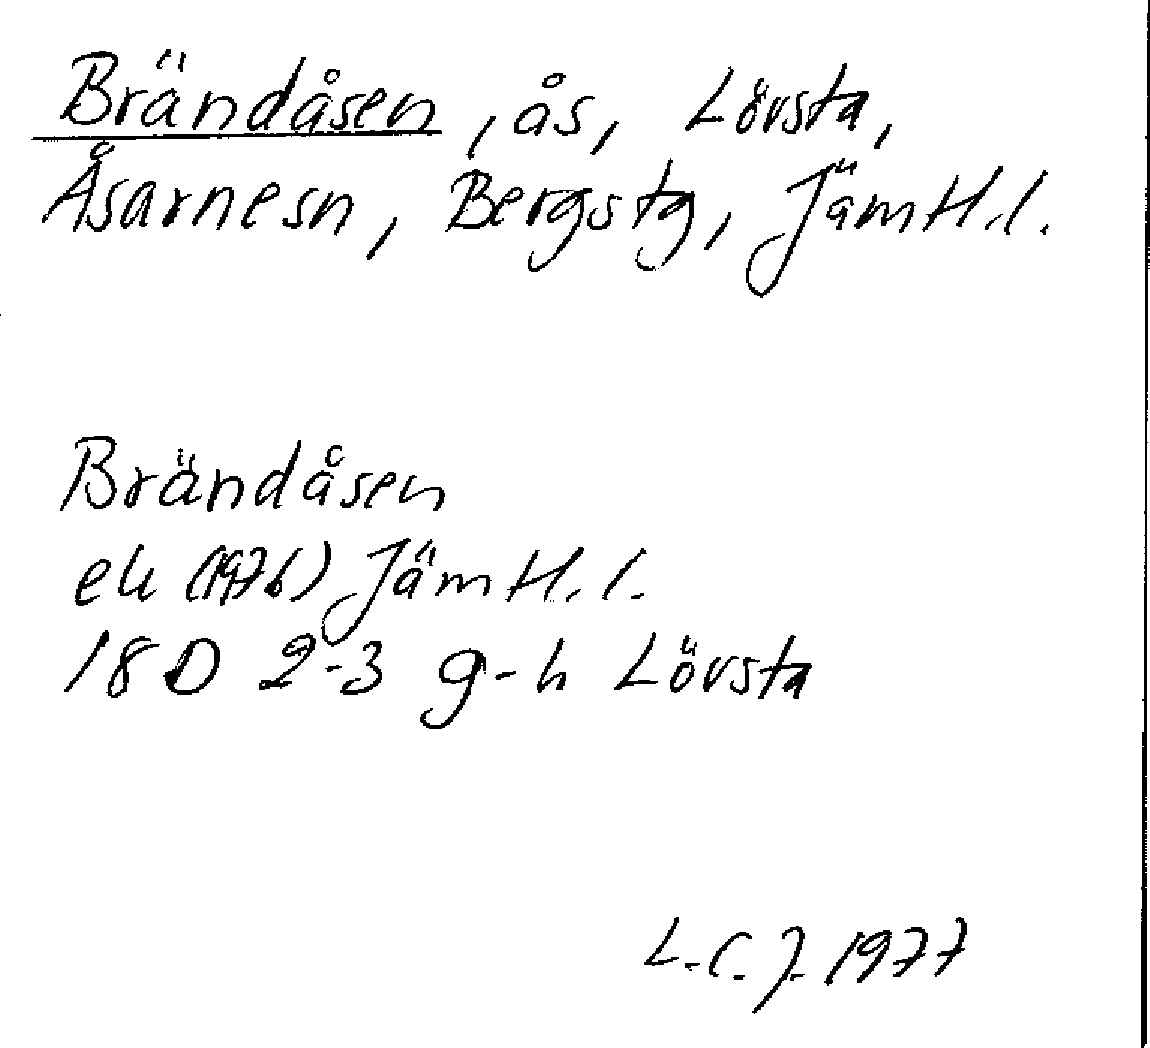 Brändåsen, ås, Lövsta,
Åsarnesn, Bergstg, Jämtl.l.
Brändåsen
ek (1976) Jämtl.l.
18D 2-3 g-h Lövsta
L.C.J. 1977